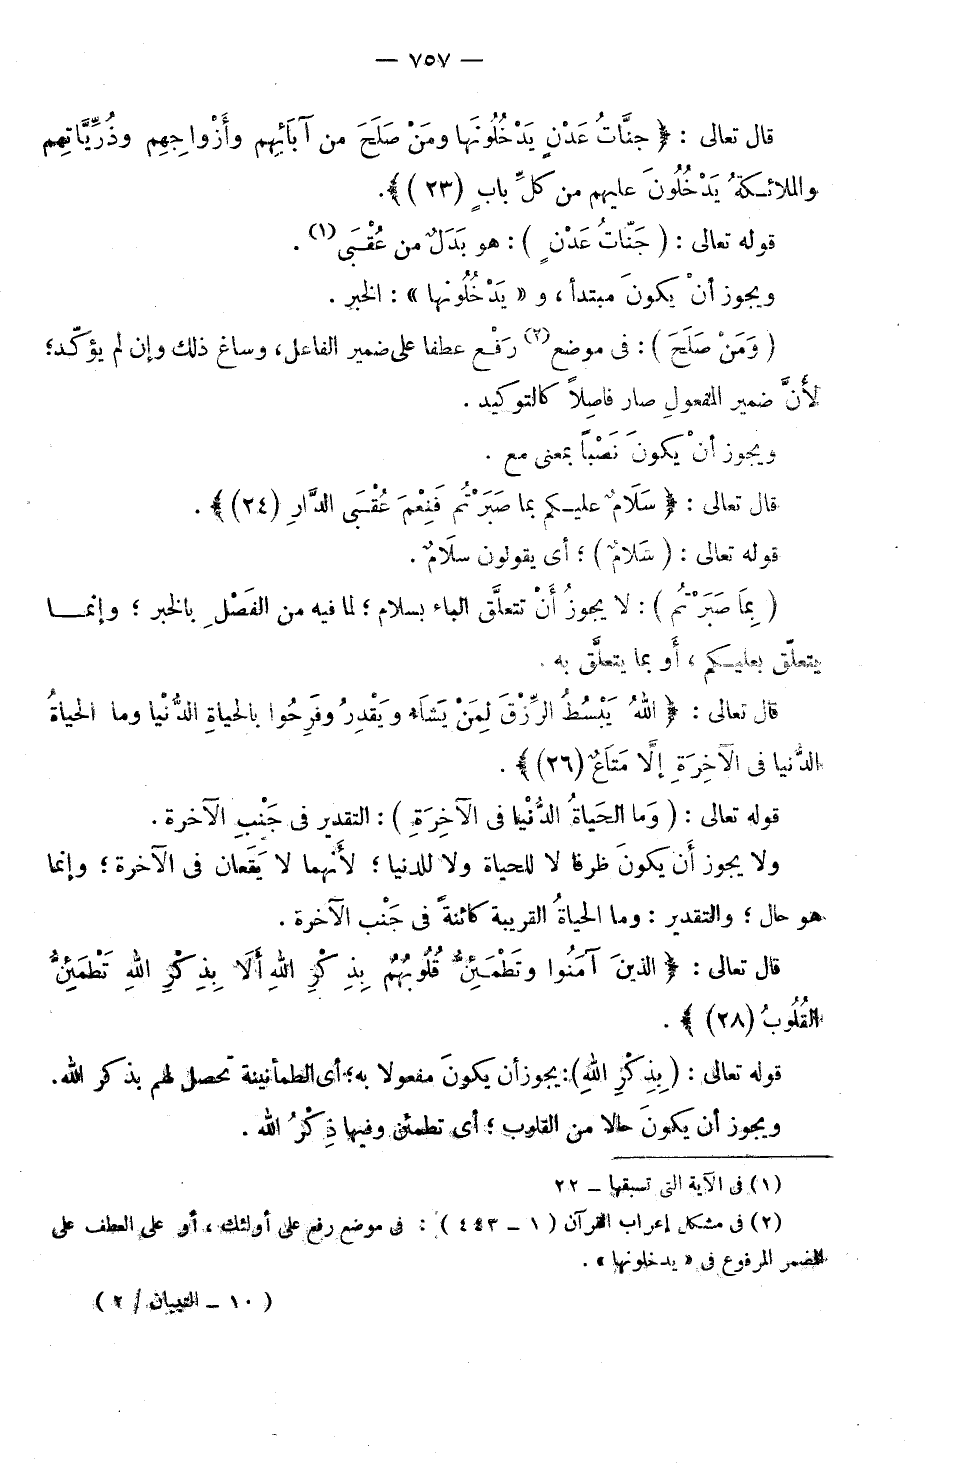 — ٧٥٧ —
قال تعالى : ﴿ جنَّاتُ عَدْنٍ يَدْخُلُونَها ومَنْ صَلَحَ من آبَائِهِم وأَزْواجِهِم وذُرِّيَّاتِهِم
والملائكةُ يَدْخُلُونَ عليهم من كلِّ بابٍ (٢٣) ﴾.
قوله تعالى : ( جَنّاتُ عَدْنٍ ) : هو بَدَلٌ من عُقْبَى(١) .
ويجوز أنْ يكونَ مبتدأ ، و « يَدْخُلُونها » : الخبر .
( وَمَنْ صَلَحَ ) : فى موضع(٢) رَفْع عطفا على ضمير الفاعل، وساغ ذلك وإن لم يؤكّد؛
لأَنَّ ضمير المفعولِ صار فاصِلاً كالتوكيد .
ويجوز أنْ يكونَ نَصْبًا بمعنى مع .
قال تعالى : ﴿ سَلَامٌ عليكم بما صَبَرْتُم فَنِعْمَ عُقْبَى الدَّارِ (٢٤) ﴾ .
قوله تعالى : ( سَلامٌ ) ؛ أى يقولون سلَامٌ .
( بِمَا صَبَرْتُم ) : لا يجوزُ أَنْ تتعلَّق الباء بسلام ؛ لما فيه من الفَصْلِ بالخبر ؛ وإنما
يتعلّق بعليكم ، أَو بما يتعلَّق به .
قال تعالى : ﴿ اللهُ يَبْسُطُ الرِّزْقَ لِمَنْ يَشَاء ويَقْدِرُ وفَرِحُوا بالحياةِ الدُّنْيا وما الحياةُ
الدُّنيا فى الآخِرَةِ إلَّا مَتَاعٌ (٢٦) ﴾ .
قوله تعالى : ( وَما الحَياةُ الدُّنْيا فى الآخِرَةِ ) : التقدير فى جَنْبِ الآخرة .
ولا يجوز أَن يكونَ ظرفا لا للحياة ولا للدنيا ؛ لأَنهما لا يَقَعان فى الآخرة ؛ وإنما
هو حال ؛ والتقدير : وما الحياةُ القريبة كائنةً فى جَنْب الآخرة .
قال تعالى : ﴿ الذينَ آمَنُوا وتَطْمَئِنُّ قُلُوبُهُمْ بِذِكْرِ اللهِ أَلَا بِذِكْرِ اللهِ تَطْمَئِنُّ
القُلُوبُ (٢٨) ﴾ .
قوله تعالى : ( بِذِكْرِ اللهِ): يجوز أن يكونَ مفعولا به؛ أى الطمأنينة تحصل لهم بذكر الله.
ويجوز أن يكونَ حالا من القلوب ؛ أى تطمئن وفيها ذِكْرُ الله .
(١) فى الآية التى تسبقها – ٢٢
(٢) فى مشكل إعراب القرآن ( ١ – ٤٤٣ ) : فى موضع رفع على أولئك ، أو على العطف على
المضمر المرفوع فى « يدخلونها » .
( ١٠ – التبيان / ٢ )